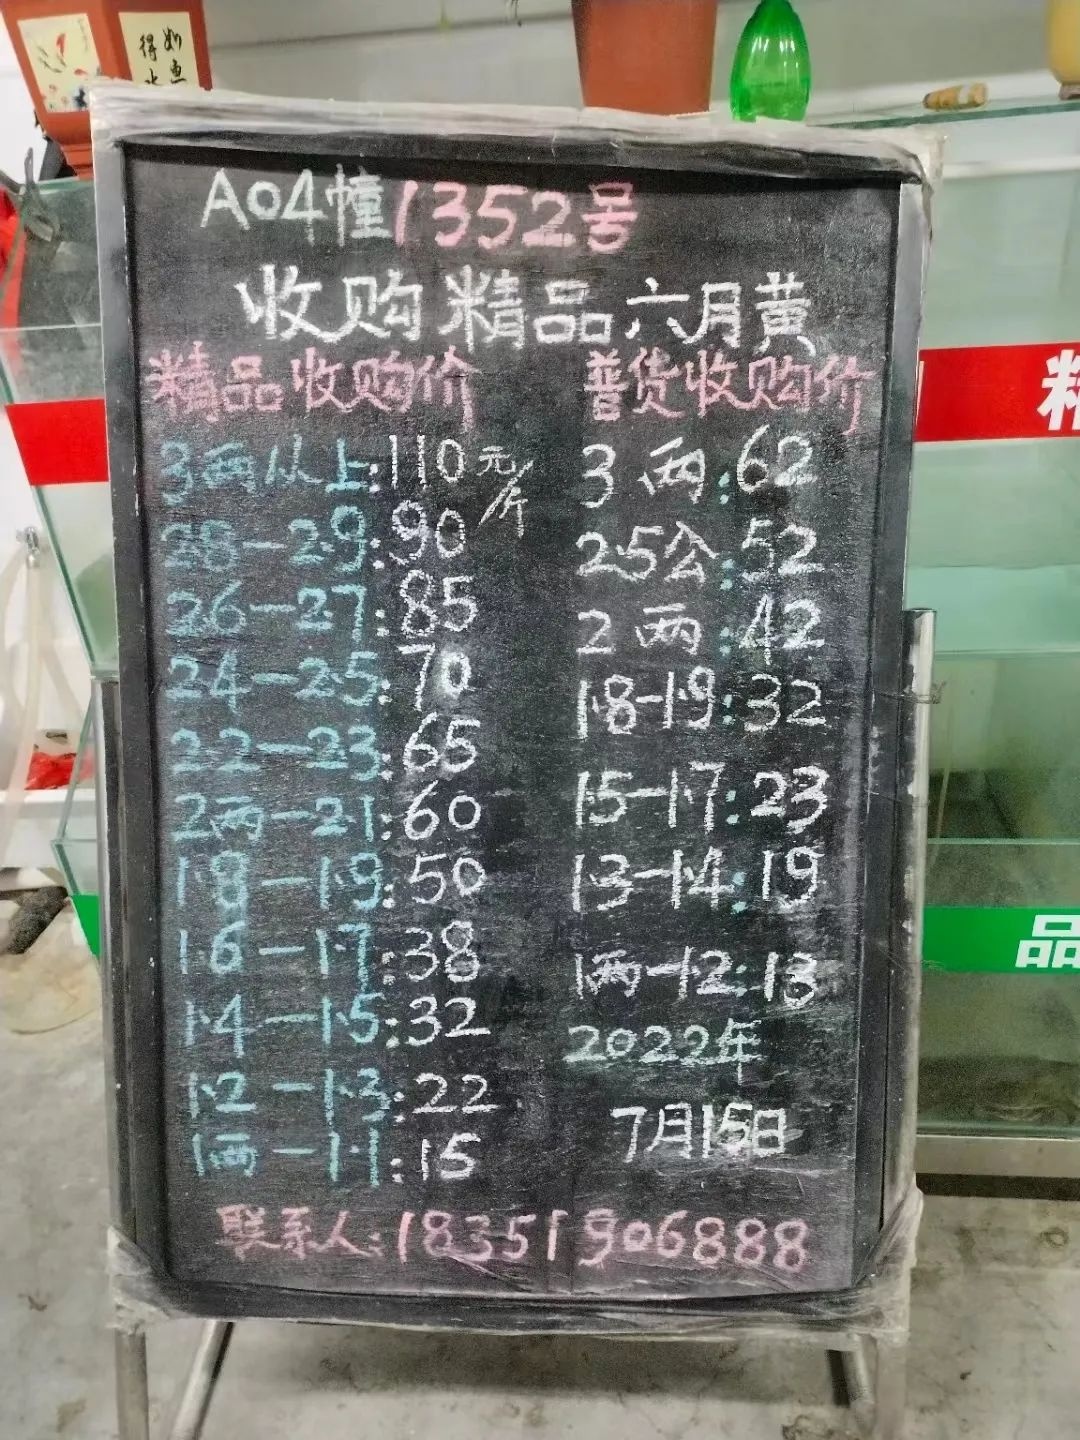 得如
水鱼
A04幢1352号
收购精品六月黄
精品收购价
3两从上:110元/斤
28-29:90
26-27:85
24-25:70
22-23:65
2两-21:60
1·8-1·9:50
1·6-1·7:38
1·4-1·5:32
1·2-1·3:22
1两-1·1:15
普货收购价
3两:62
2·5公:52
2两:42
1·8-1·9:32
1·5-1·7:23
1·3-1·4:19
1两-1·2:13
2022年
7月15日
联系人:18351906888
精
品